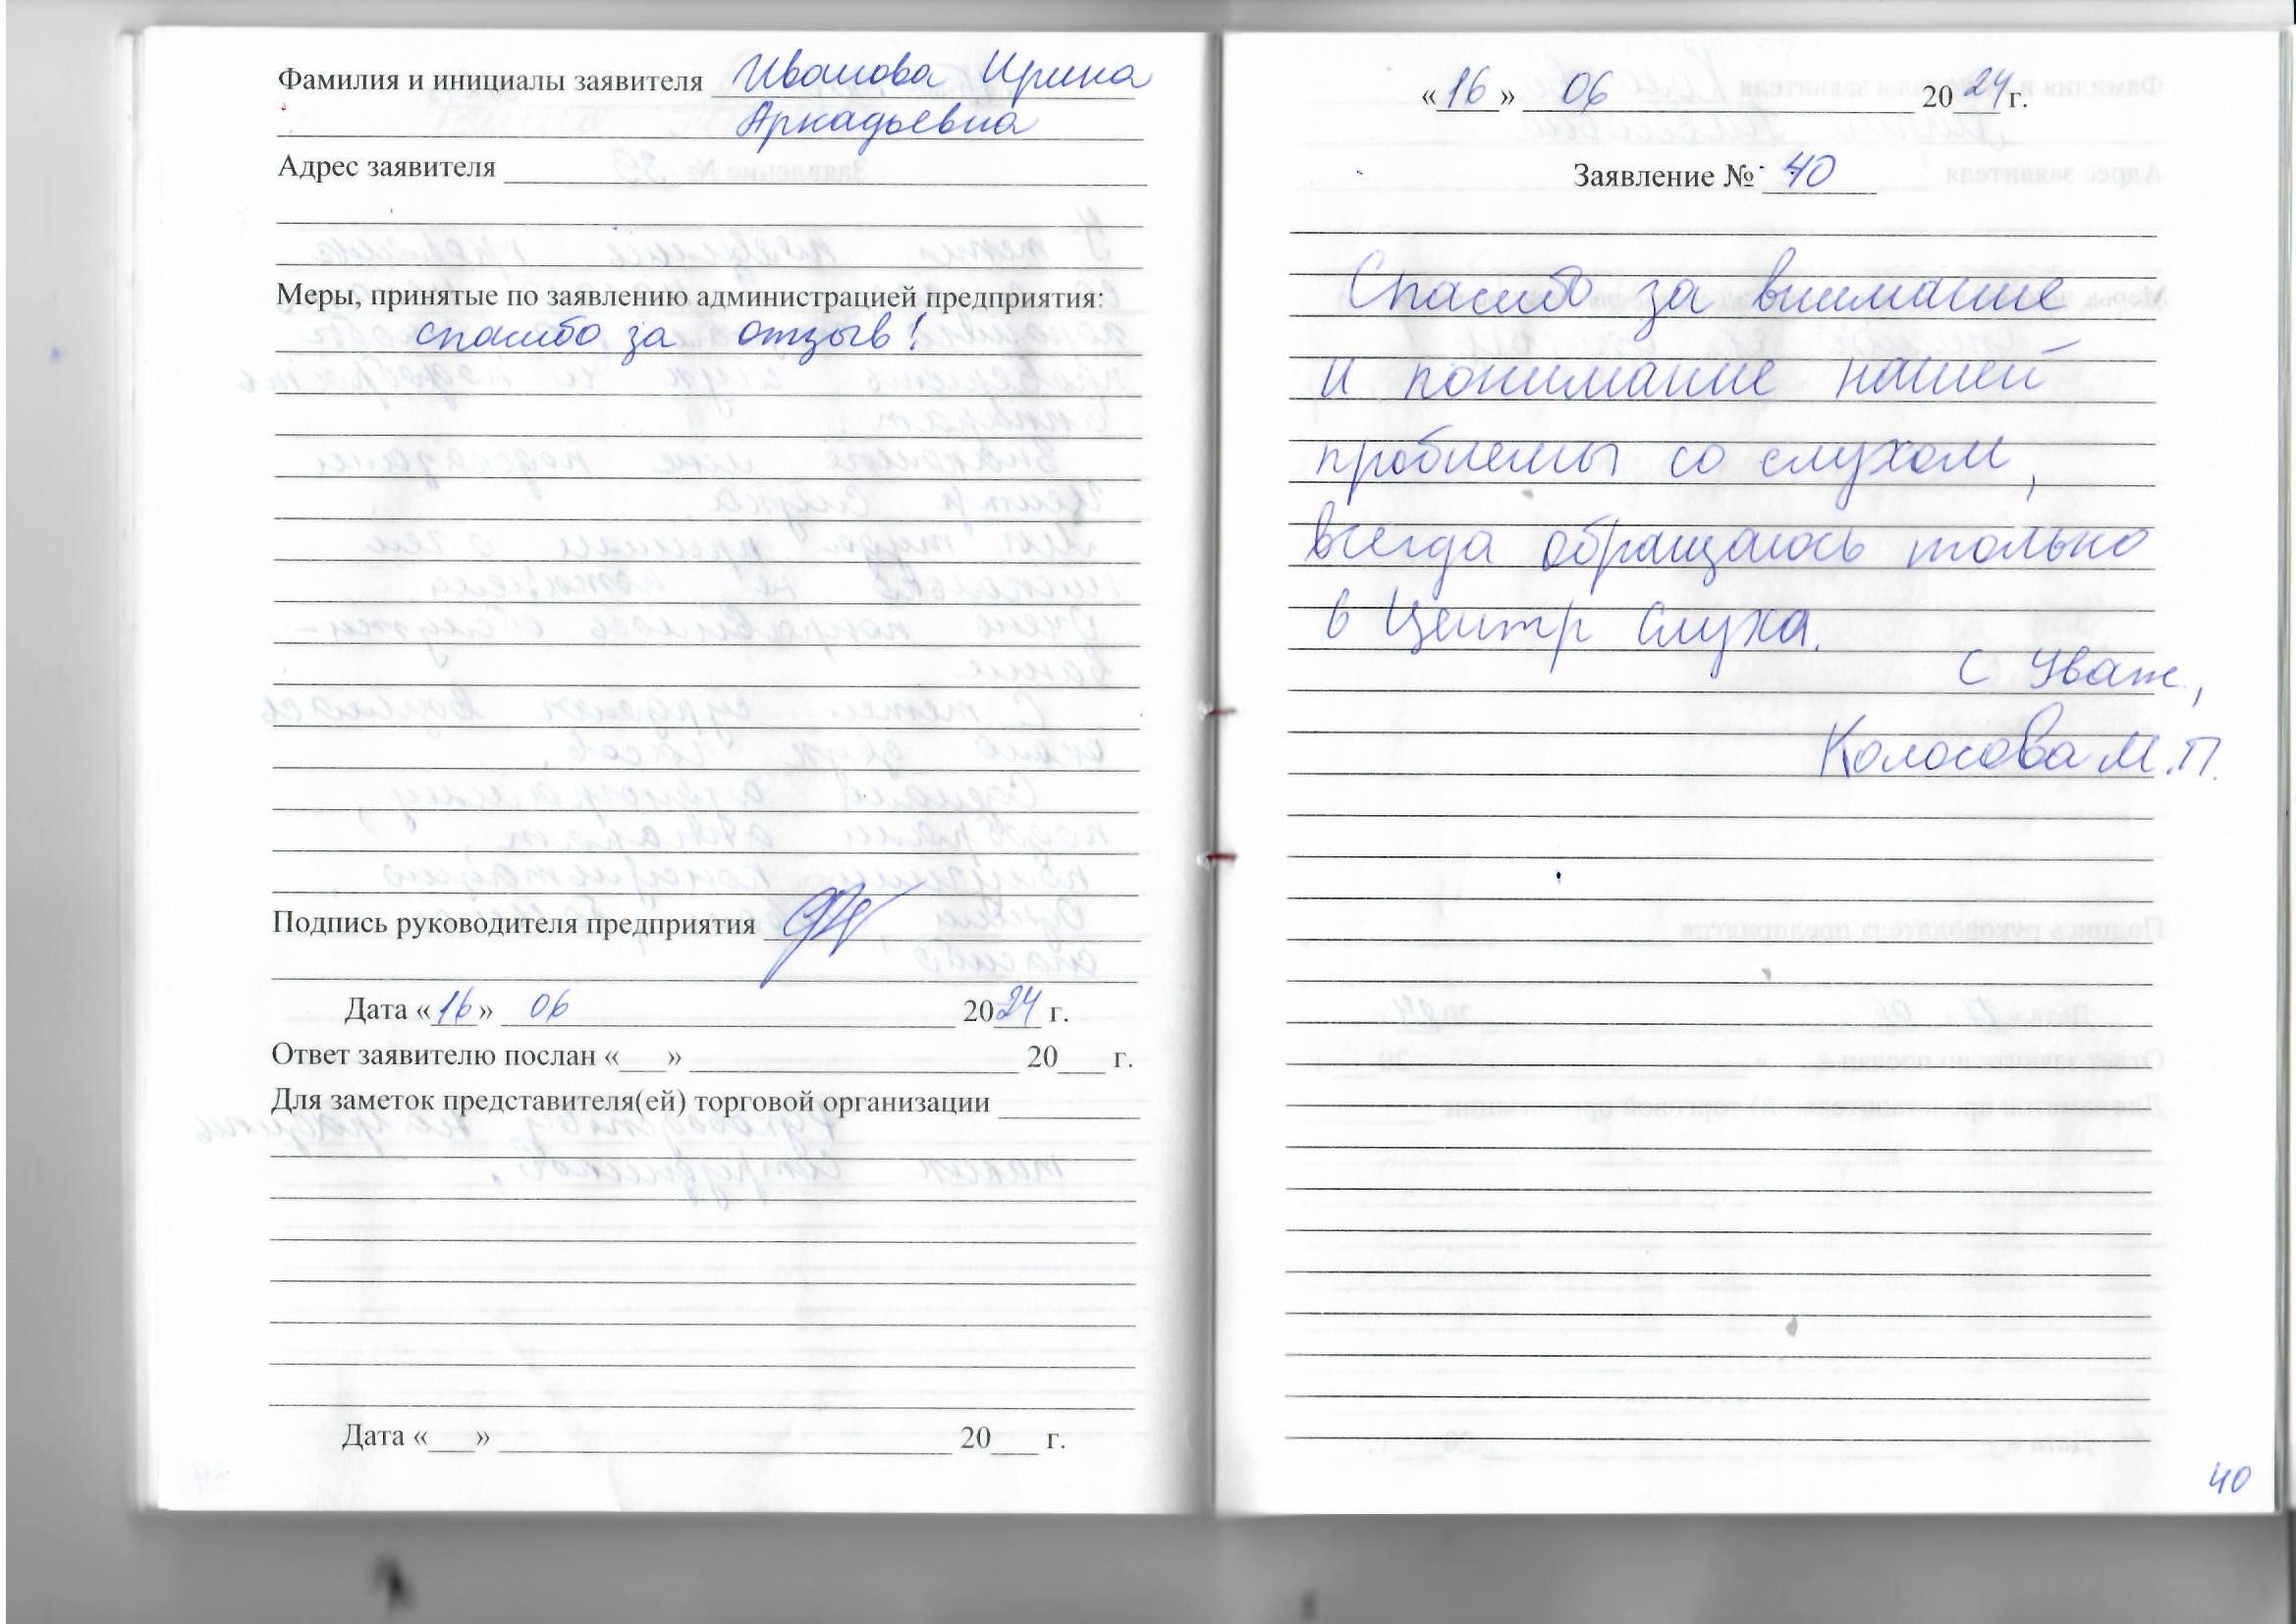 Фамилия и инициалы заявителя Иванова Ирина
Аркадьевна
Адрес заявителя
Меры, принятые по заявлению администрацией предприятия:
спасибо за отзыв!
Подпись руководителя предприятия
Дата «16» 06 2024 г.
Ответ заявителю послан «___» 20___ г.
Для заметок представителя(ей) торговой организации
Дата «___» 20___ г.
«16» 06 2024 г.
Заявление № 40
Спасибо за внимание
и понимание нашей
проблемы со слухом,
всегда обращаюсь только
в Центр Слуха.
С Уваж.,
Колосова М.П.
40